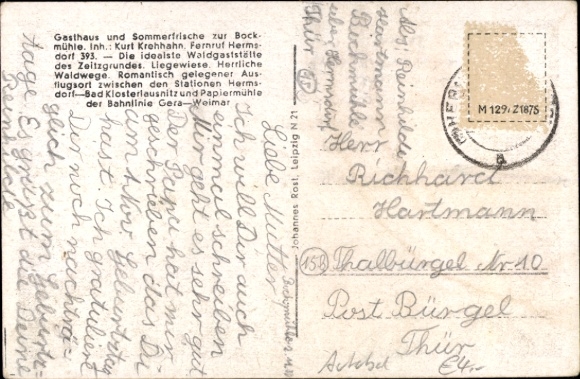 Gasthaus und Sommerfrische zur Bock-
mühle. Inh.: Kurt Krehhahn. Fernruf Herms-
dorf 393. — Die idealste Waldgaststätte
des Zeitzgrundes. Liegewiese. Herrliche
Waldwege. Romantisch gelegener Aus-
flugsort zwischen den Stationen Herms-
dorf—Bad Klosterlausnitz und Papiermühle
der Bahnlinie Gera—Weimar
Liebe Mutter
Ich will Dir auch
einmal schreiben
Mir geht es sehr gut
Der Papa hat mir
geschrieben das Di
am 1 Nov Geburtstag
hast. Ich gratuliere
Dir nur noch nachträ-
glich zum Geburts-
tage Es grüßt die Deine
Reinhilde
Johannes Rost, Leipzig N 21
Abs. Reinhilde
Hartmann
Bockmühle
üb. Hermsdorf
Thür
M 129, Z1875
Herr
Richhard
Hartmann
15b Thalbürgel Nr 10
Post Bürgel
Thür
€4.-